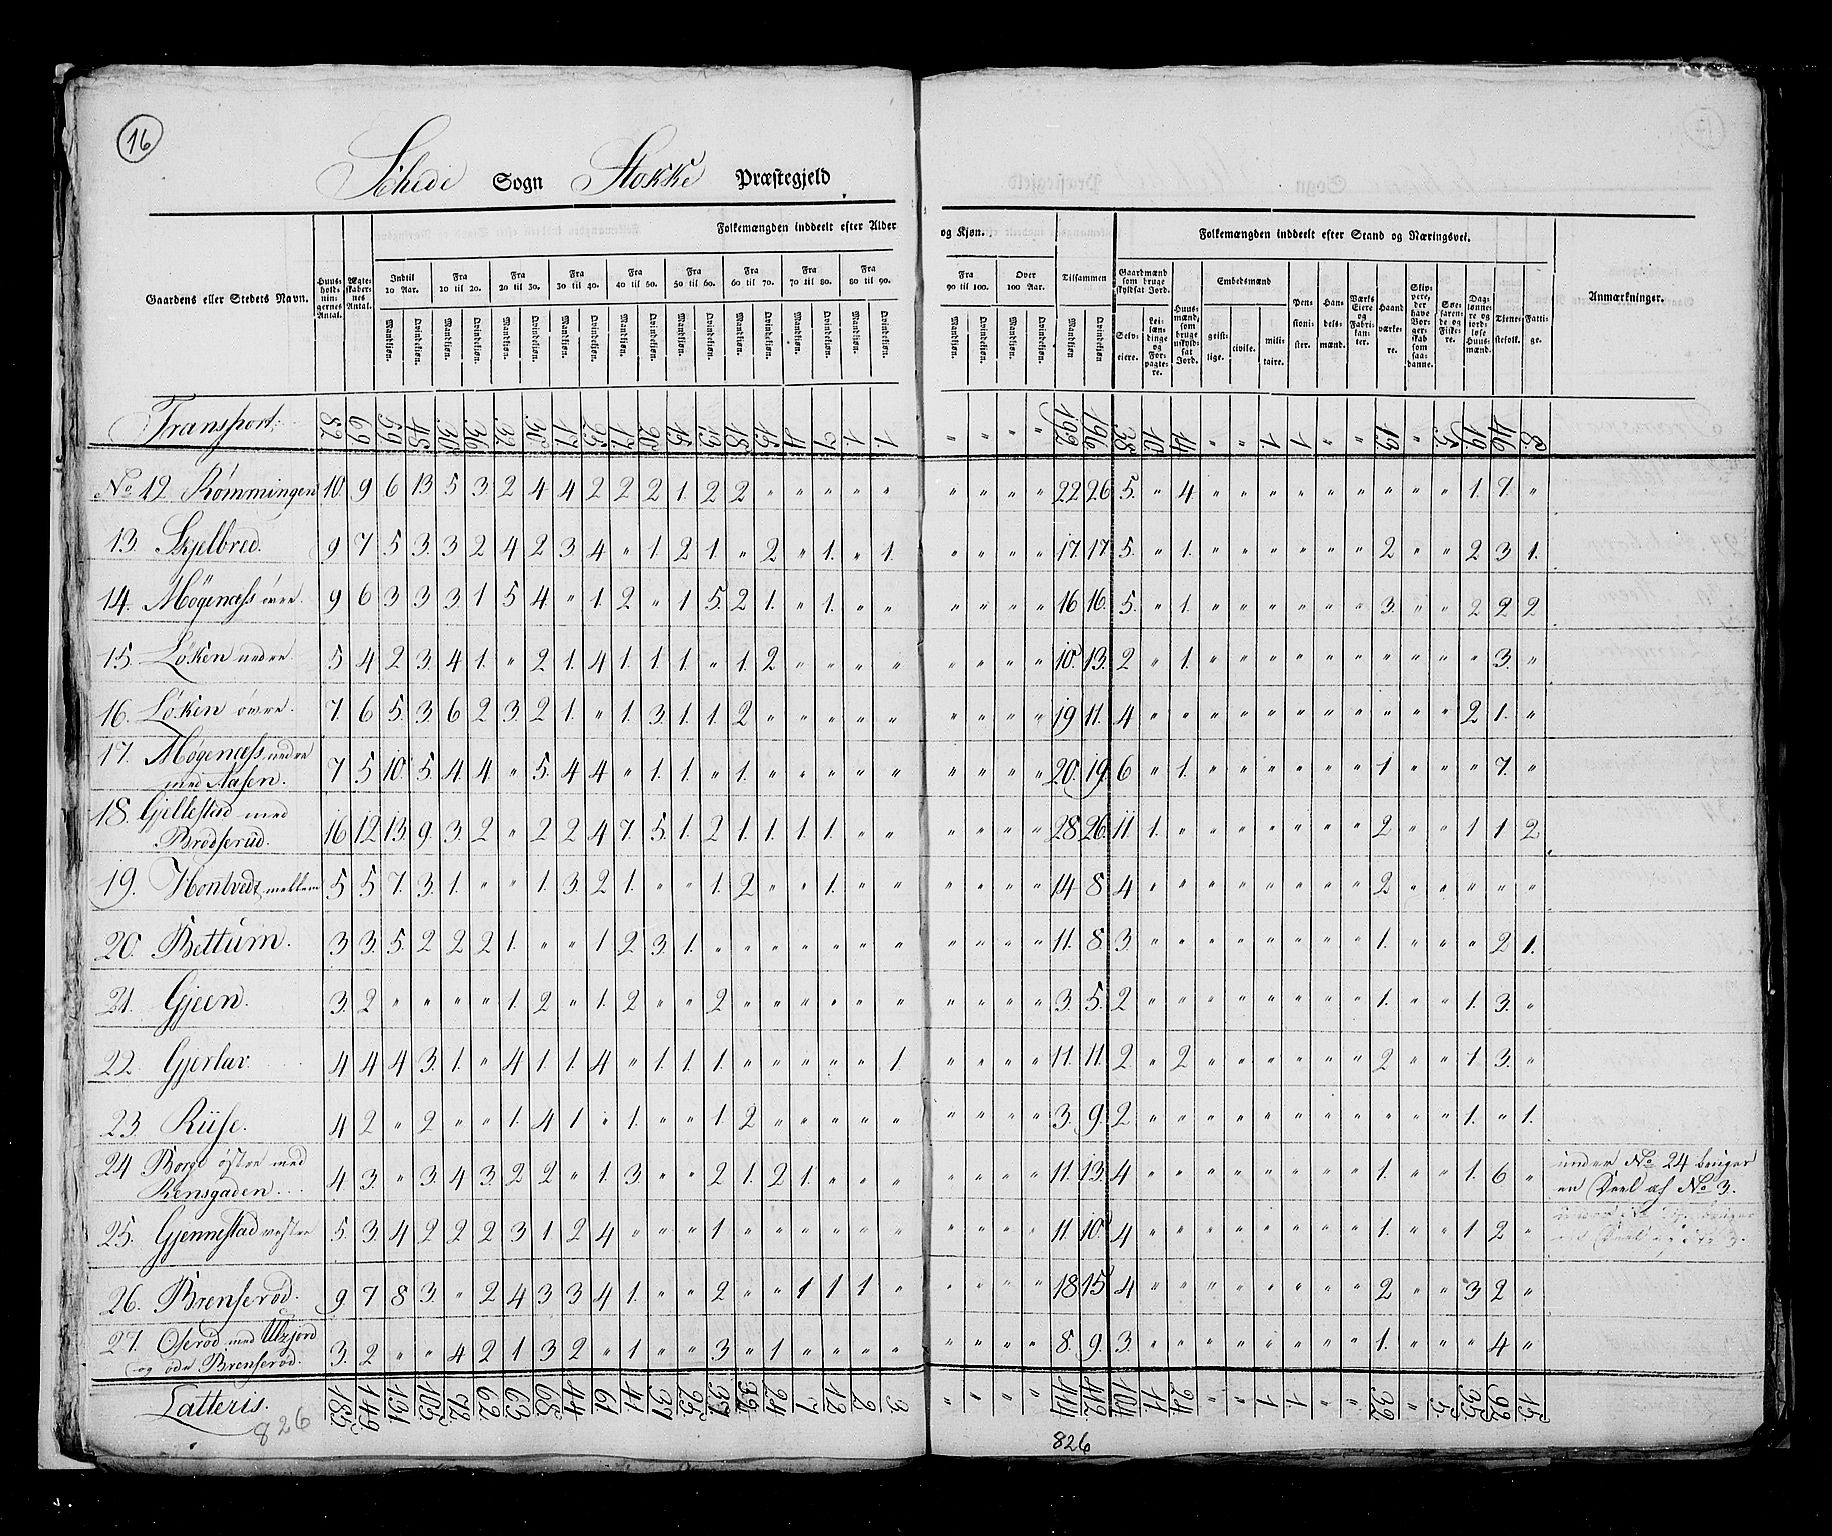 16
Schede Sogn Stokke Præstegjeld
Gaardens eller Stedets Navn. Huus-holdningernes Antal. Ægteskabernes Antal. Folkemængden inddeelt efter Alder og Kjøn. Folkemængden inddeelt efter Stand og Næringsvei. Anmærkninger.
Indtil 10 Aar. Fra 10 til 20. Fra 20 til 30. Fra 30 til 40. Fra 40 til 50. Fra 50 til 60. Fra 60 til 70. Fra 70 til 80. Fra 80 til 90. Fra 90 til 100. Over 100 Aar. Tilsammen
Mandkiøn. Qvindekiøn.
Gaardmænd som bruge skyldsat Jord. Selveiere. Leilændinge og Forpagtere. Huusmænd, som bruge uskyldsat Jord. Embedsmænd geistlige. civile. militaire. Pensionister. Handelsmænd. Værks Eiere og Fabrikanter. Haandværkere. Skippere, der have Borgerskab som saadanne. Søefarende og Fiskere. Daglønnere og jordløse Huusmænd. Tjenestefolk. Fattige.
Transport: 82 69 59 48 30 36 32 30 17 25 17 20 15 13 18 15 4 7 1. 1. " " " " 192 196 38 10 14 " " 1. 1 " " 13 " 5. 19. 46 8.
No 12 Rømmingen 10 9 6 13 5 3 2 4 4 2 2 2 1. 2 2 " " " " " " " " " 22 26 5. " 4 " " " " " " " " " 1. 7. "
13. Skjelbred. 9 7 5 3. 3 2 4 2 3 4 " 1. 2 1. " 2 " 1. " 1. " " " " 17 17 5. " 1. " " " " " " 2 " " 2 3 1.
14. Mögenæss övre. 9 6 3 3 3. 1 5 4 " 1. 2 " 1 5. 2 1. " 1. " " " " " " 16 16. 5. " 1. " " " " " " 3. " " 2 2 2
15. Løken nedre 5 4 2 3. 4 1. " 2 1. 4 1. 1 1 " 1. 2 " " " " " " " " 10. 13. 2 " 1. " " " " " " " " " " 3. "
16. Løken øvre. 7. 6 5. 3 6 2 3. 2 1. " 1. 3. 1. 1. 2 " " " " " " " " " 19 11. 4 " " " " " " " " " " " 2 1. "
17. Møgenæss nedre
med Aasen. 7 5 10. 5 4 4 " 5. 4 4 " 1. 1. " 1. " " " " " " " " " 20. 19. 6 " 1. " " " " " " 1 " " " 7. "
18. Gjellestad med
Brødserud. 16 12 13. 9 3. 2 " 2 2 4 7. 5. 1. 2 1. 1. 1 1. " " " " " " 28 26. 11 1. " " " " " " " 2 " " 1 1 2
19. Hontvedt mellem 5 5 7. 3. 1. " " 1. 3. 2 1. " " 1. 2 " " 1. " " " " " " 14 8 4 " " " " " " " " 2 " " " " "
20. Bettum. 3 3. 5. 2 2 2 1. " " 1 2 3. 1. " " " " " " " " " " " 11. 8 3. " " " " " " " " 1. " " " 2 1.
21. Gjeen. 3. 2 " " " " 1. 2 " 1. 2 " " 2 " " " " " " " " " " 3. 5. 2 " " " " " " " " 1. " " 1. 3. "
22. Gjerlav. 4 4 4 3. 1. " 4 1. 1. 4 " 1. 1 1. " " " " " 1 " " " " 11. 11. 2 " 2 " " " " " " 2 " " 1. 3. "
23. Riise. 4 2 " 2 " " 1. 4 1 " 1. " " 1. 2 " " " " " " " " " 3. 9. 2 " " " " " " " " " " " 1. " 1.
24 Borge østre med
Rensgaden. 4 3. " 3. 4 3 2 2 " 1. 3. " " 2 1. 2 1. " " " " " " " 11. 13. 4 " " " " " " " " 1. " " 1. 6 " under No 24 bruger
en Deel af No 3.
25. Gjennestad vestre 5. 3. 4 2 2 2 3 1 2 4 " " " 1 " " " " " " " " " " 11. 10. 4 " " " " " " " " 1. " " 1 2 "
26. Brenserød. 9 7 8 3. " 2 4 3 3 4 1. " " 2 " " 1 1 1 " " " " " 18 15 4 " " " " " " " " 2 " " 3 2 "
27. Oserød med Ulzjord
og øde Brenserød. 3. 2 " " 4 2 1 3 2 " 1 " " 3 " 1 " " " " " " " " 8. 9. 3. " " " " " " " " 1. " " " 4 "
Latteris. 185 149 131 105 72 62 63 68 44 61 41 37 25 37 32 24 7 12 2 3. " " " " 414 412 104 11 24 " " 1 1. " " 32 " 5. 35 92 15
826
826